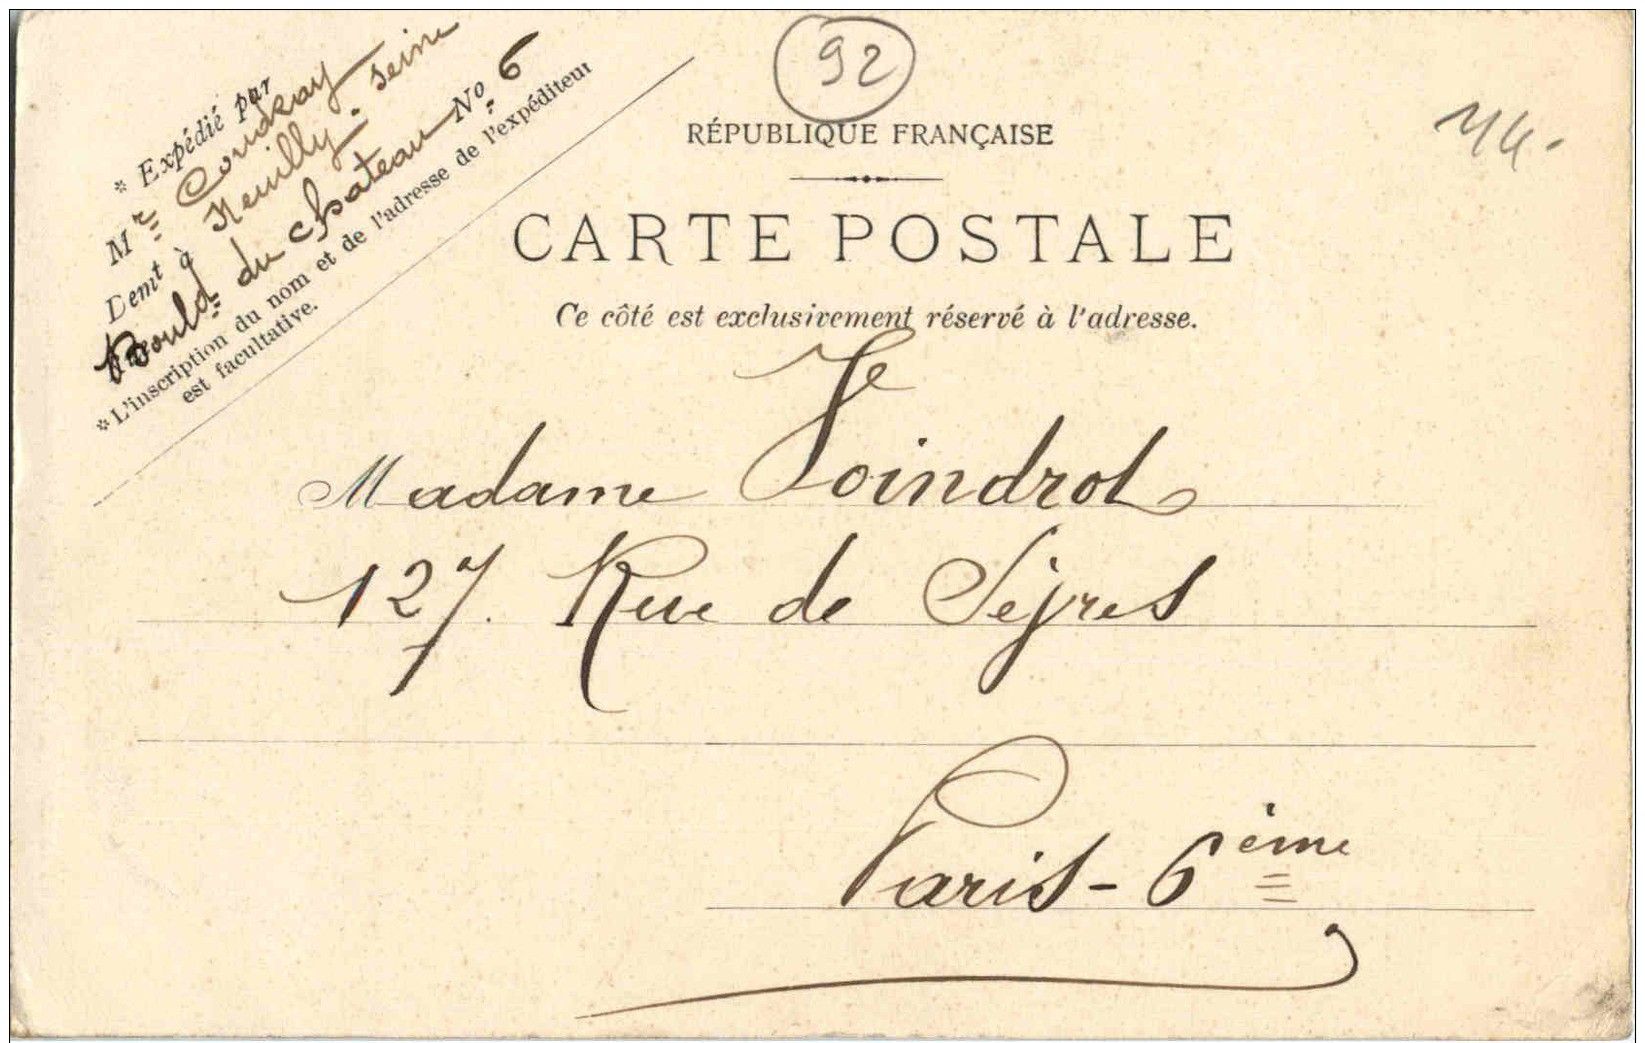 92
44.
* Expédié par
Mr Coudray
Demt à Neuilly. seine
Bould. du chateau No. 6
* L'inscription du nom et de l'adresse de l'expéditeur
est facultative.
RÉPUBLIQUE FRANÇAISE
CARTE POSTALE
Ce côté est exclusivement réservé à l'adresse.
Madame Voindrot
127. Rue de Sèvres
Paris - 6ème